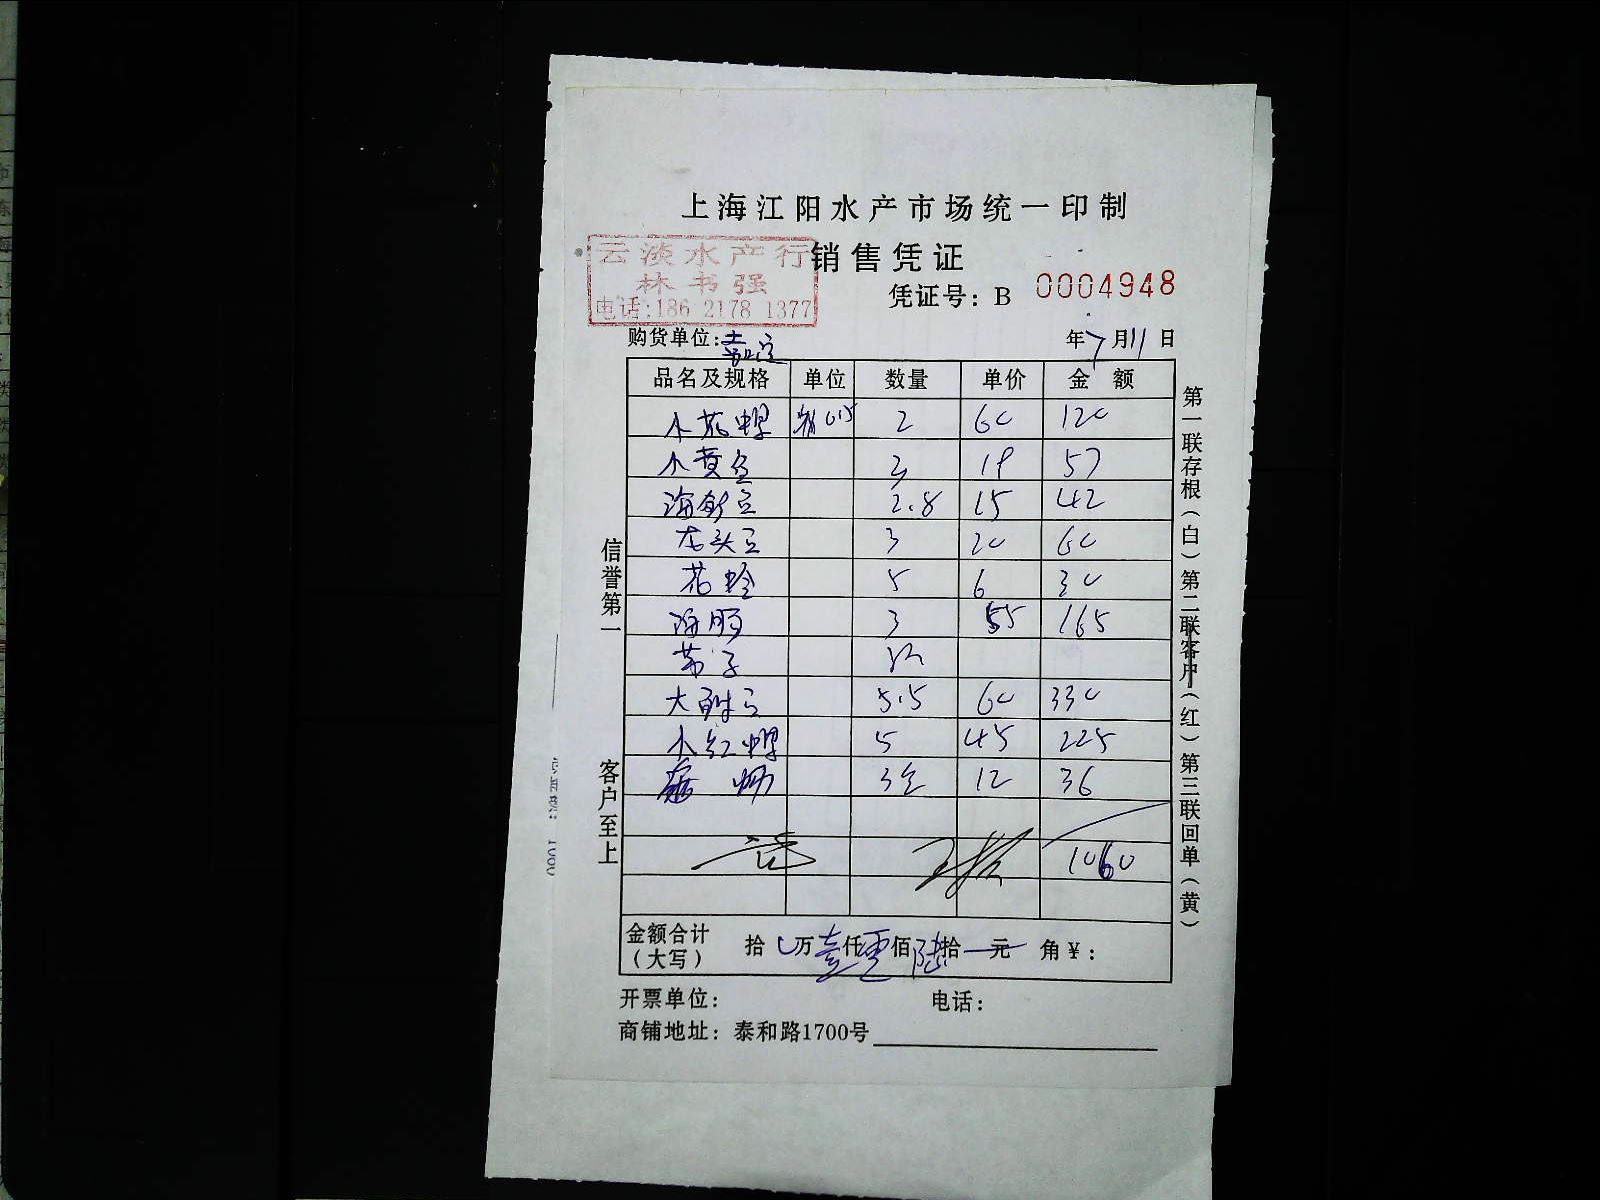 上海江阳水产市场统一印制
销售凭证
云淡水产行
林书强
电话:186 2178 1377
凭证号: B 0004948
购货单位: 嘉定
年7月11日
品名及规格 单位 数量 单价 金额
小花螺 2 60 120
小黄鱼 3 19 57
2.8 15 42
龙头 3 20 60
花蛤 5 6 30
海肠 3 55 165
5.5 60 330
小红螺 5 45 225
3 12 36
1060
金额合计(大写) 拾 万壹仟零佰陆拾 元 角¥:
开票单位: 电话:
商铺地址: 泰和路1700号
信誉第一
客户至上
第一联存根(白)第二联客户(红)第三联回单(黄)